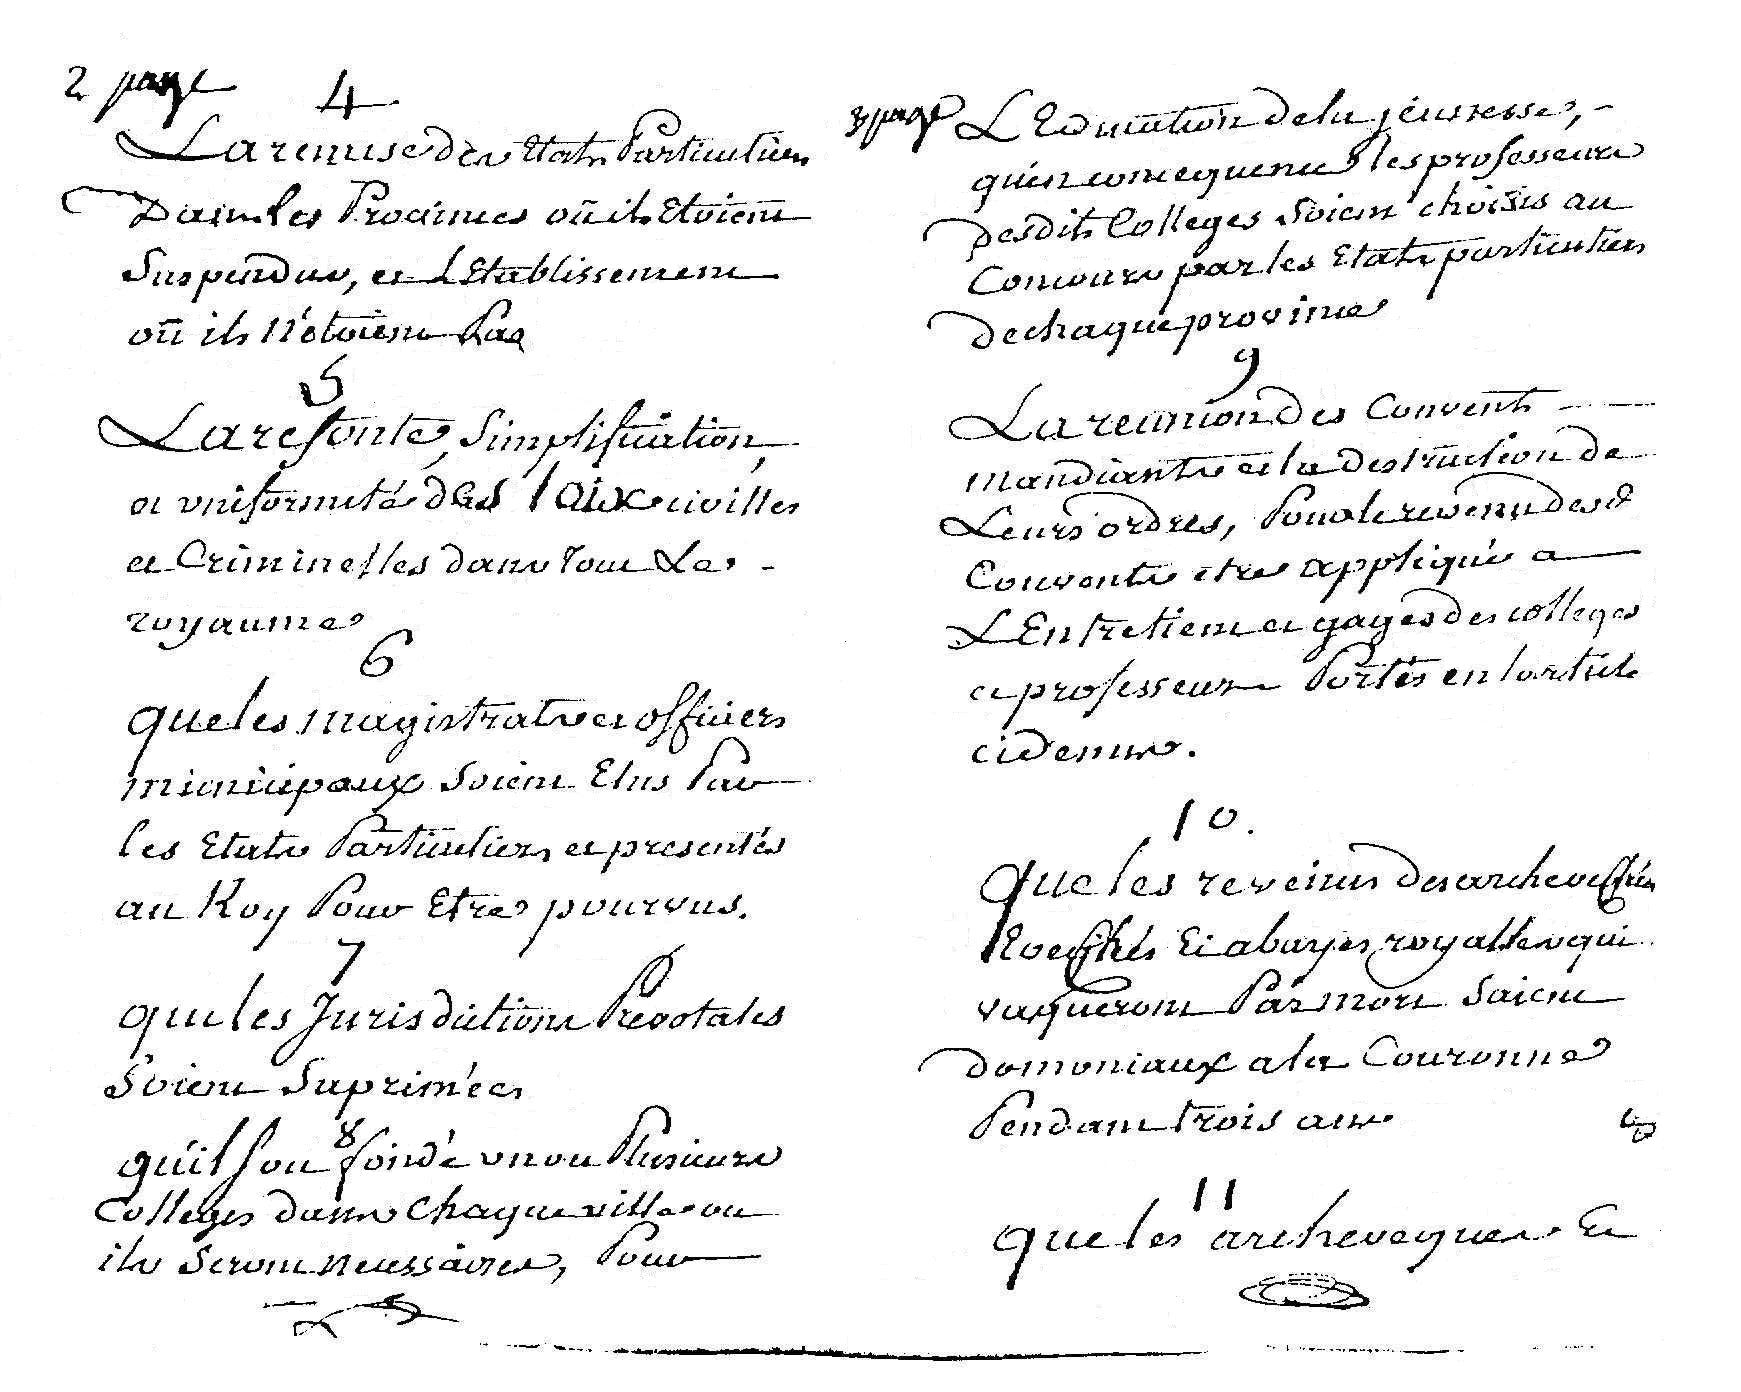 2 page
4
La remise des Etats Particuliers
Dans les Provinces où ils Etoient
Suspendus, et L'Etablissement
où ils N'étoient Pas
5
La refonte, Simplification,
et uniformité des Loix civilles
et Criminelles dans tout Le
royaume
6
que les magistrats et officiers
municipaux Soient Elus Par
les Etats Particuliers et presentés
au Roy Pour Etre pourvus.
7
que les Jurisdictions Prevotales
Soient Suprimées
8
qu'il Soit fondé un ou Plusieurs
Colleges dans Chaque ville ou
ils Seront necessaires, Pour
3 page
L'Education de la jeunesse,
qu'en consequence les professeurs
desdits Colleges Soient choisis au
Concours par les Etats particuliers
de chaque province
9
La reunion des Convents
mandiants et la destruction de
Leurs ordres, Pour le revenu desd
Convents etre appliqué a
L'Entretient et gages des colleges
et professeurs Portés en l'article
cidessus.
10.
que les revenus des archeveschés
Eveschés Et abayes royalles qui
vaqueront Par mort Soient
domoniaux a la Couronne
Pendant trois ans
11
que les archeveques Et